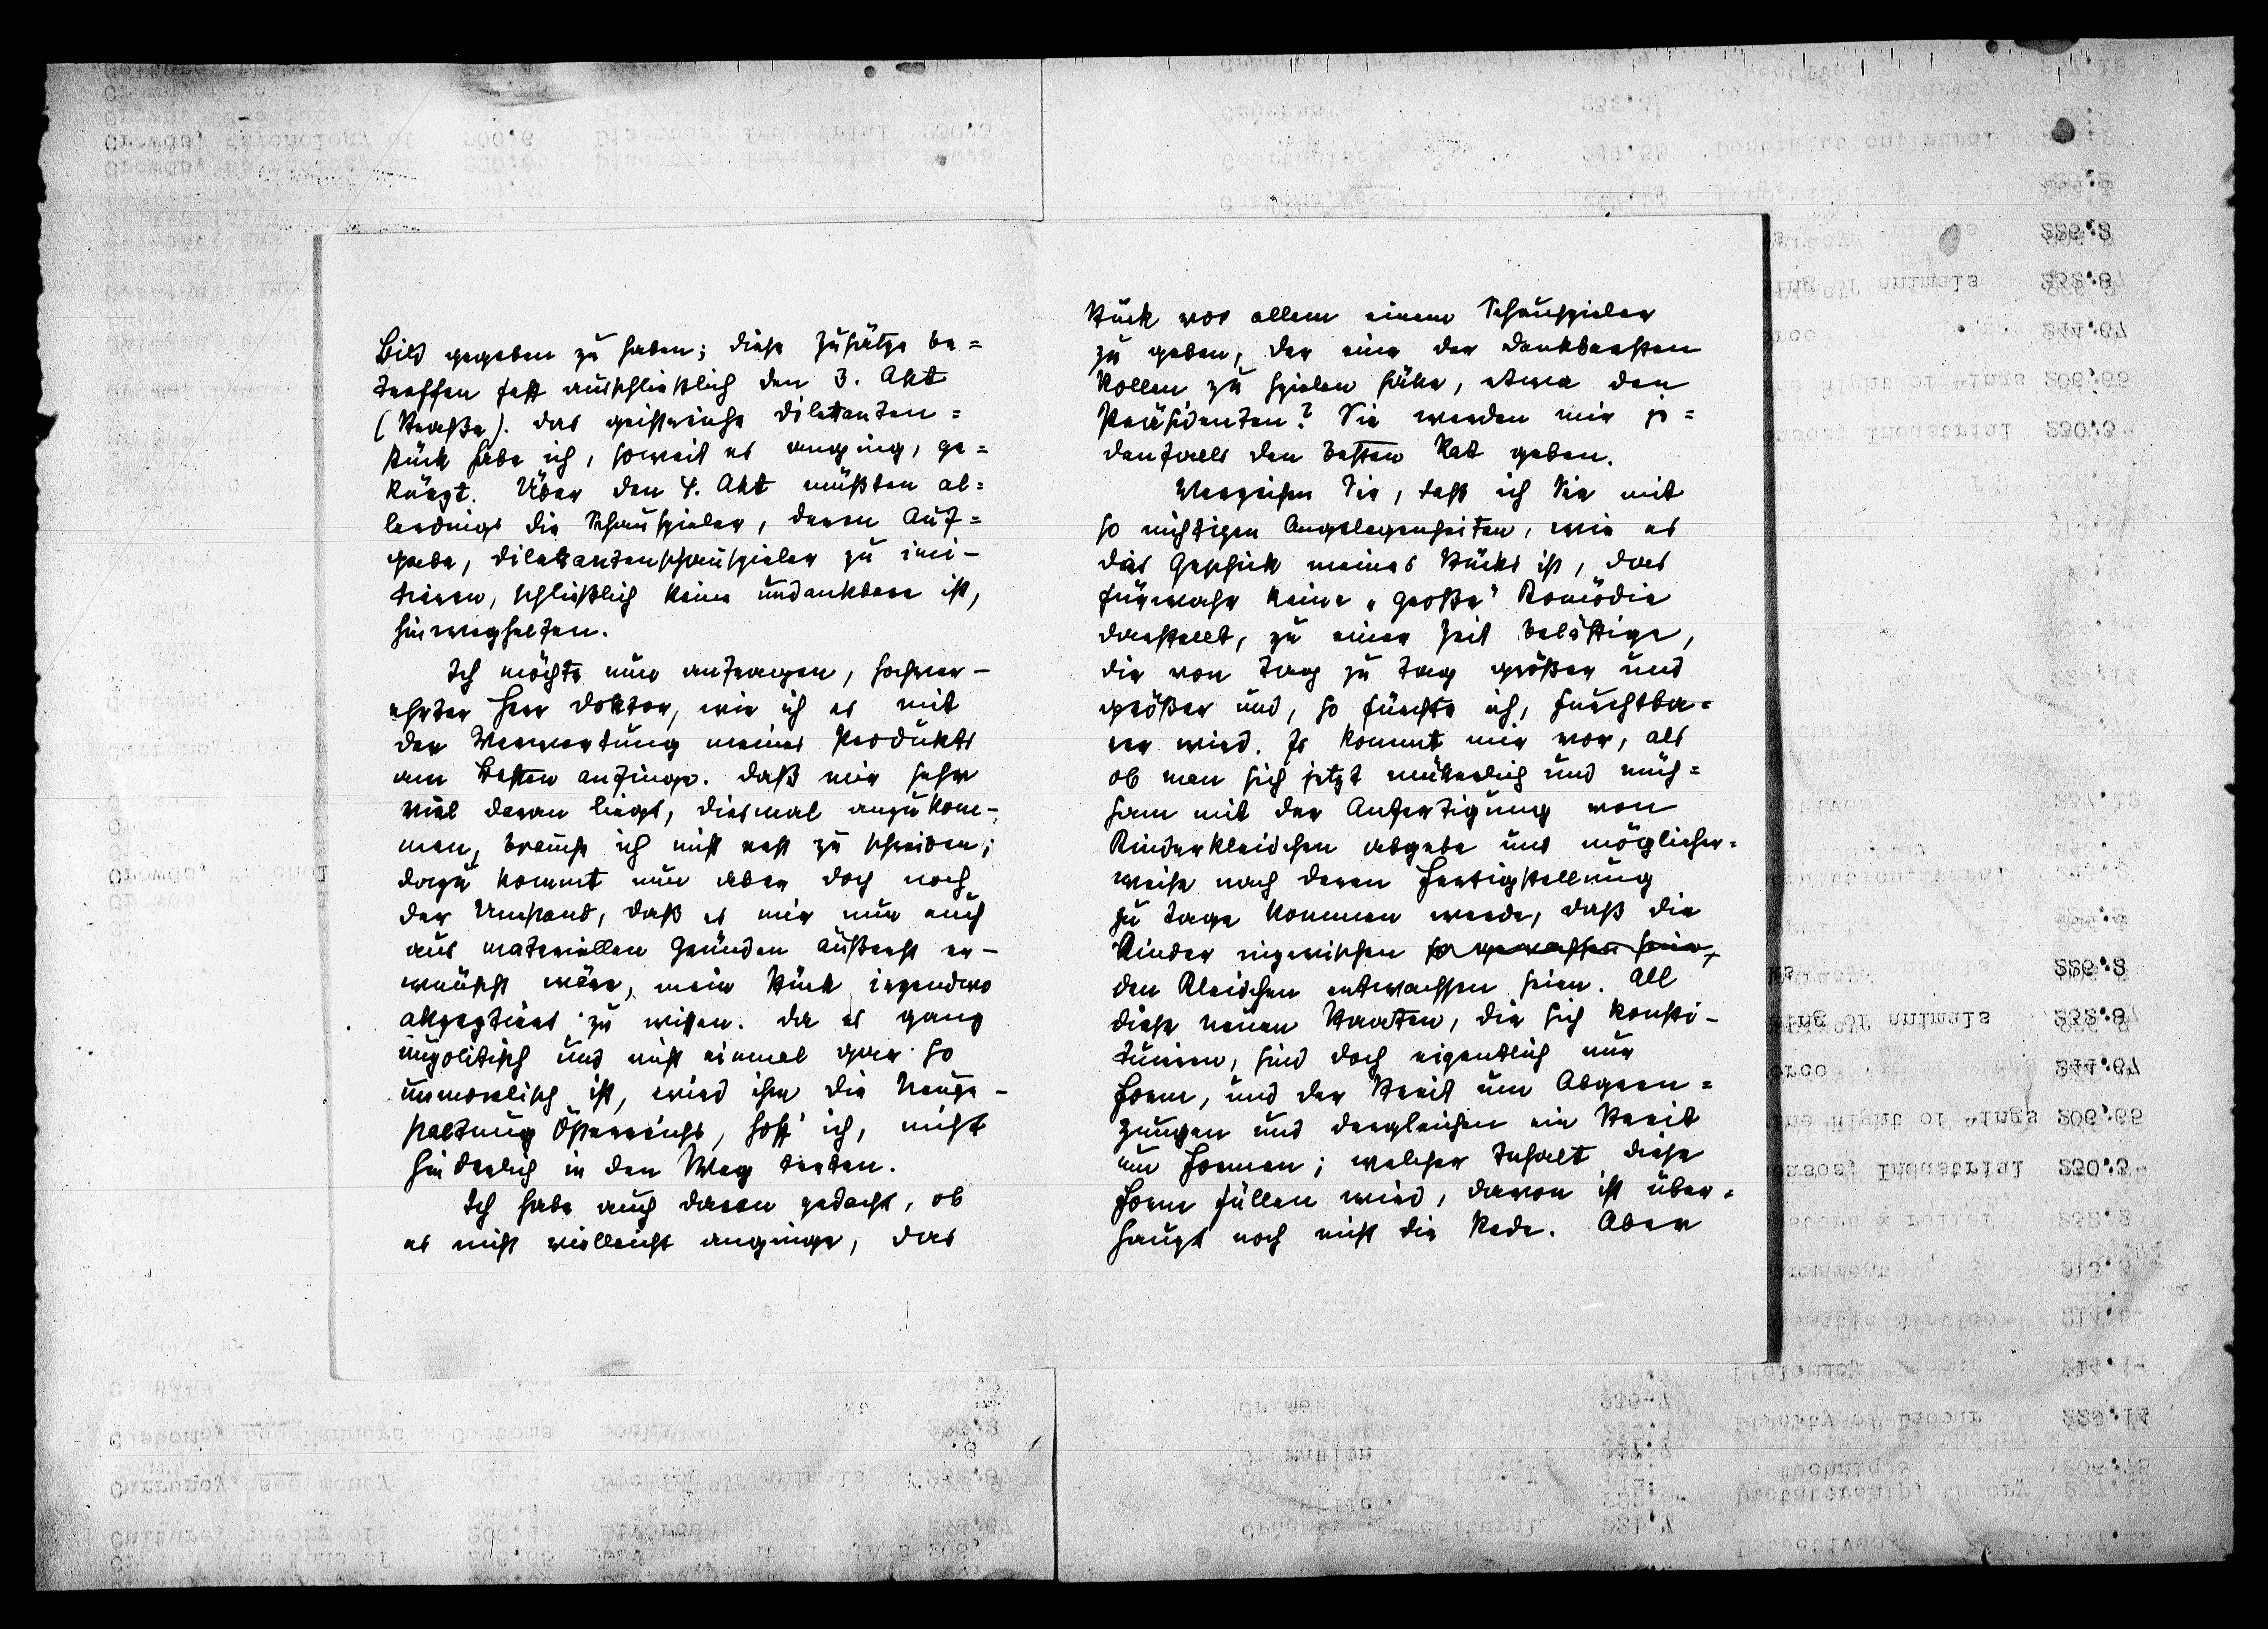 Bild gegeben zu haben; diese Zusätze be=
treffen fast ausschließlich den 3. Akt
(Straße). Das geistreiche Dilettanten=
stück habe ich, soweit es anging, ge=
kürzt. Über den 4. Akt müßten al=
lerdings die Schauspieler, deren Auf=
gabe, Dilettantenschauspieler zu imi-
tieren, schließlich keine undankbare ist,
hinweghelfen.
Ich möchte nun anfragen, hochver-
ehrter Herr Doktor, wie ich es mit
der Verwertung meines Produkts
am besten anfinge. Daß mir sehr
viel daran liegt, diesmal anzukom-
men, brauche ich nicht erst zu schreiben;
dazu kommt nun aber doch noch
der Umstand, daß es mir nun auch
aus materiellen Gründen äußerst er-
wünscht wäre, mein Stück irgendwo
akzeptiert zu wissen. Da es ganz
unpolitisch und nicht einmal gar so
unmoralisch ist, wird ihm die Neuge-
staltung Österreichs, hoff' ich, nicht
hinderlich in den Weg treten.
Ich habe auch daran gedacht, ob
es nicht vielleicht anginge, das
Stück vor allem einem Schauspieler
zu geben, der eine der dankbarsten
Rollen zu spielen hätte, etwa den
Präsidenten? Sie werden mir je=
denfalls den besten Rat geben.
Verzeihen Sie, daß ich Sie mit
so nichtigen Angelegenheiten, wie es
das Geschick meines Stücks ist, das
fürwahr keine „große" Komödie
darstellt, zu einer Zeit belästige,
die von Tag zu Tag größer und
größer und, so fürchte ich, furchtba=
rer wird. Es kommt mir vor, als
ob man sich jetzt mütterlich und müh=
sam mit der Anfertigung von
Kinderkleidchen abgebe und möglicher=
weise nach deren Fertigstellung
zu Tage kommen werde, daß die
Kinder inzwischen so gewachsen seien,
den Kleidchen entwachsen seien. All
diese neuen Staaten, die sich konsti-
tuieren, sind doch eigentlich nur
Form, und der Streit um Abgren=
zungen und dergleichen ein Streit
um Formen; welcher Inhalt diese
Form füllen wird, davon ist über=
haupt noch nicht die Rede. Aber